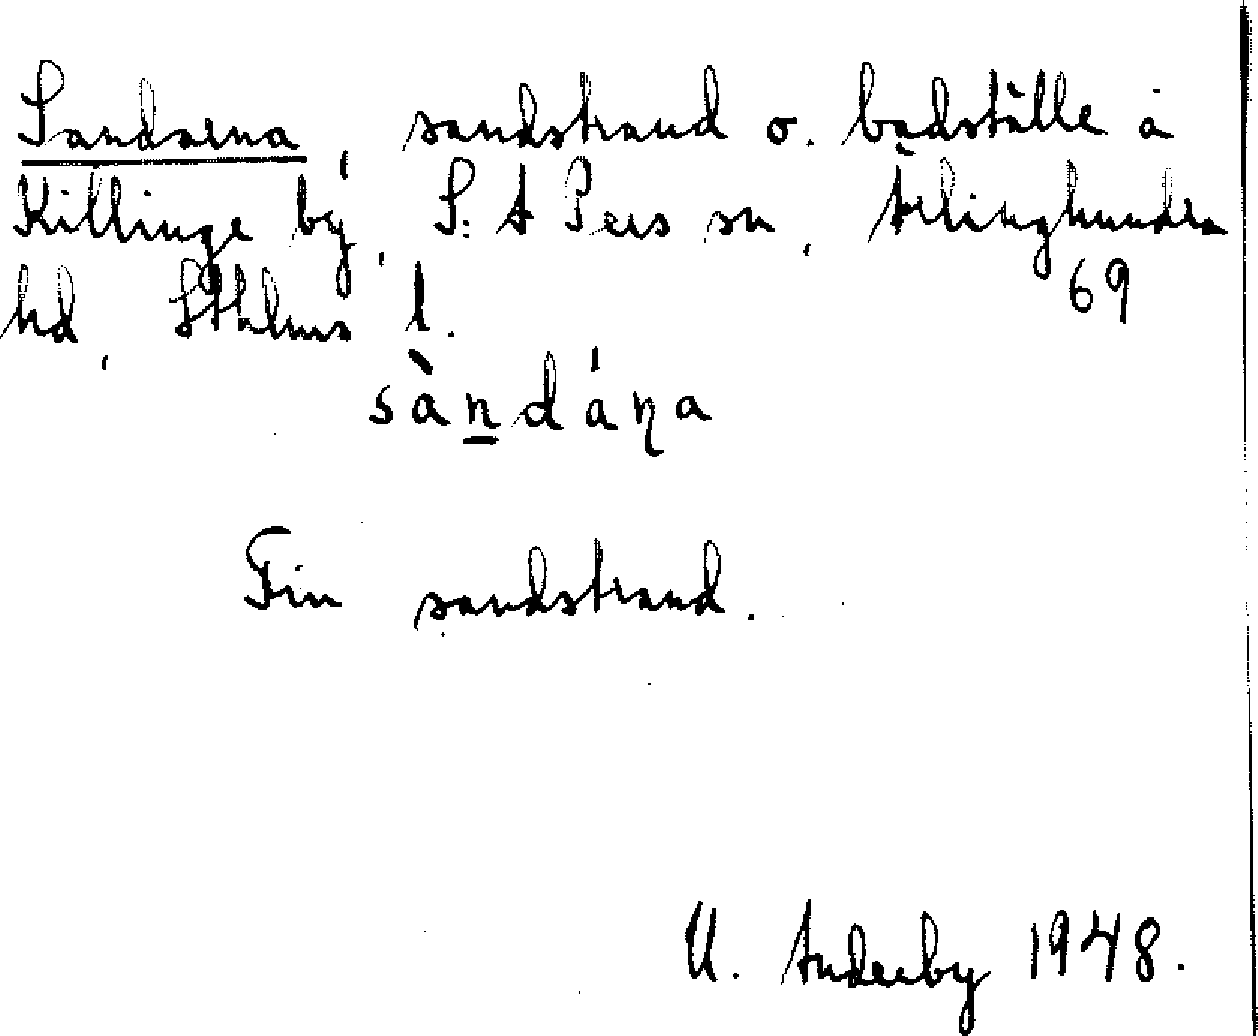 Sandarna, sandstrand o. badställe å
Killinge by, S:t Pers sn, Ärlinghundra
hd, Sthlms l. 69
sàndáṇa
Fin sandstrand.
U. Anderby 1948.